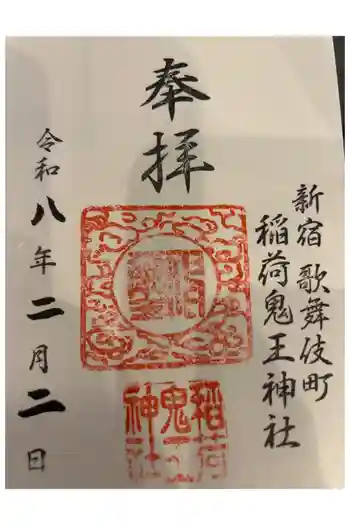 新宿歌舞伎町
稲荷鬼王神社
奉拝
稲荷
鬼王
神社
令和八年二月二日